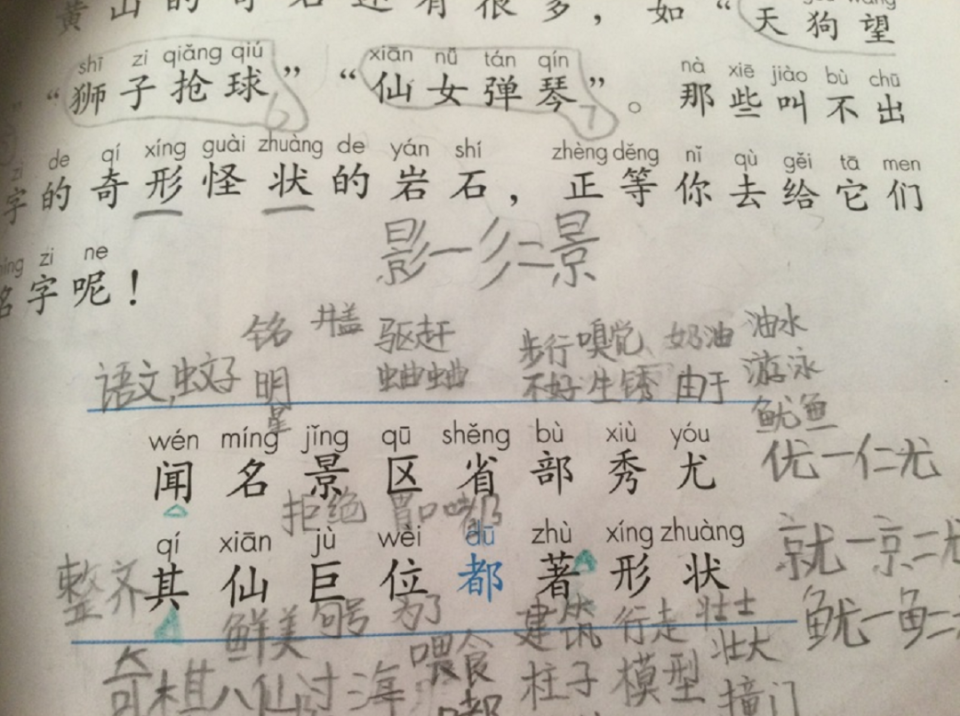 黄山的奇石还有很多，如“天狗望
shī zi qiǎng qiú xiān nǚ tán qín nà xiē jiào bù chū
“狮子抢球”“仙女弹琴”。那些叫不出
zi de qí xíng guài zhuàng de yán shí zhèng děng nǐ qù gěi tā men
字的奇形怪状的岩石，正等你去给它们
zi ne
名字呢！
影一彡二景
铭 井盖 驱赶 步行 嗅觉 奶油 油水
语文,蚊子 明星 蛐蛐 不好 生锈 由于 游泳
鱿鱼
wén míng jǐng qū shěng bù xiù yóu
闻名景区省部秀尤
优一亻二尤
拒绝
qí xiān jù wèi dū zhù xíng zhuàng
整齐 其仙巨位都著形状
就一京二尤
鲜美 句号 为了 建筑 行走 壮士
鱿一鱼二
奇 棋 八仙过海 喂食 柱子 模型 壮大
嘟 撞门